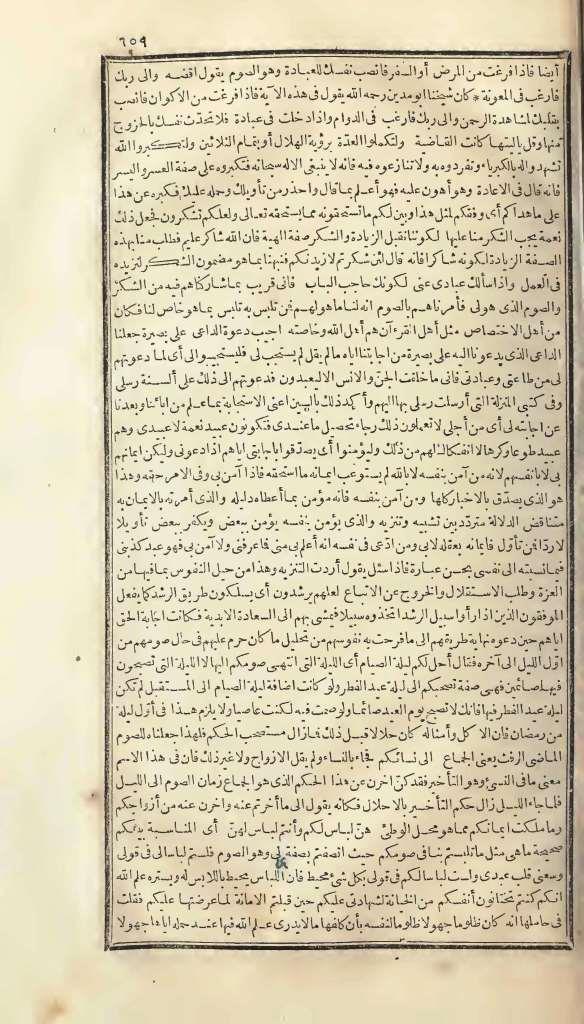 ٦٥٩
أيضا فاذا فرغت من المرض أو السفر فانصب نفسك للعبادة وهو الصوم يقول اقضه والى ربك
فارغب فى المعونة * كان شيخنا ابو مدين رحمه الله يقول فى هذه الآية فاذا فرغت من الاكوان فانصب
بقلبك لمشاهدة الرحمن والى ربك فارغب فى الدوام واذا دخلت فى عبادة فلا تحدّث نفسك بالخروج
منها وقل ياليتها كانت القاضية ولتكملوا العدّة برؤية الهلال أو بتمام الثلاثين ولتكبروا الله
تشهدوا له بالكبرياء وتفردوه به ولا تنازعوه فيه فانه لا ينبغى الا له سبحانه فتكبروه على صفة العسر واليسر
فانه قال فى الاعادة وهو أهون عليه فهو أعلم بما قال واحذر من تأويلك وحمله عليك فكبره عن هذا
على ما هداكم أى وفقكم لمثل هذا وبين لكم ما تستحقونه مما يستحقه تعالى ولعلكم تشكرون فجعل ذلك
نعمة يجب الشكر منا عليها لكوننا نقبل الزيادة والشكر صفة الهية فان الله شاكر عليم فطلب منا بهذه
الصفة الزيادة لكونه شاكرا فانه قال لئن شكرتم لأزيدنكم فنبهنا بما هو مضمون الشكر لنزيده
فى العمل واذا سألك عبادى عنى لكونك حاجب الباب فانى قريب بما شاركناهم فيه من الشكر
والصوم الذى هو لى فأمرناهم بالصوم انه لنا ما هو لهم فمن تلبس به تلبس بما هو خاص لنا فكان
من أهل الاختصاص مثل أهل القرءآن هم أهل الله وخاصته اجيب دعوة الداعى على بصيرة جعلنا
الداعى الذى يدعونا اليه على بصيرة من اجابتنا اياه ما لم يقل لم يستجب لى فليستجيبوا لى أى لما دعوتهم
لى من طاعتى وعبادتى فانى ما خلقت الجنّ والانس الا ليعبدون فدعوتهم الى ذلك على ألسنة رسلى
وفى كتبى المنزلة التى أرسلت رسلى بها اليهم وأكد ذلك بالسين اعنى الاستجابة بما علم من ابائنا وبعدنا
عن اجابته لى أى من أجلى لا تعملون ذلك رجاء تحصيل ما عندى فتكونون عبيد نعمة لا عبيدى وهم
عبيد طوعا وكرها لا انفكاك لهم من ذلك وليؤمنوا أى يصدّقوا باجابتى اياهم اذا دعونى وليكن ايمانهم
بى لا بانفسهم لانه من آمن بنفسه لا بالله لم يستوعب ايمانه ما استحقه فاذا آمن بى وفى الامر حقه وهذا
هو الذى يصدّق بالاخبار كلها ومن آمن بنفسه فانه مؤمن بما أعطاه دليله والذى أمرته بالايمان به
متناقض الدلالة متردّد بين تشبيه وتنزيه والذى يؤمن بنفسه يؤمن ببعض ويكفر ببعض تأويلا
لا ردّا فمن تأوّل فايمانه بعقله لا بى ومن ادّعى فى نفسه انه أعلم بى منى فما عرفنى ولا آمن بى فهو عبد كذبنى
فيما نسبته الى نفسى بحسن عبارة فاذا سئل يقول أردت التنزيه وهذا من حيل النفوس بما فيها من
العزة وطلب الاستقلال والخروج عن الاتباع لعلهم يرشدون أى يسلكون طريق الرشد كما يفعل
الموفقون الذين اذا رأوا سبيل الرشد اتخذوه سبيلا فيمشى بهم الى السعادة الابدية فكانت اجابة الحق
اياهم حين دعوه نهاية طريقهم الى ما فرحت به نفوسهم من تحليل ما كان حرم عليهم فى حال صومهم من
اوّل الليل الى آخره فقال أحل لكم ليلة الصيام أى الليلة التى انتهى صومكم اليها لا الليلة التى تصبحون
فيها صائمين فهى صفة تصحبكم الى ليلة عيد الفطر ولو كانت اضافة ليلة الصيام الى المستقبل لم تكن
ليلة عيد الفطر فيها فانك لا تصبح يوم العيد صائما ولو صمت فيه لكنت عاصيا ولا يلزم هذا فى أوّل ليلة
من رمضان فان الاكل وأمثاله كان حلالا قبل ذلك فما زال مستصحب الحكم فلهذا جعلناه للصوم
الماضى الرفث يعنى الجماع الى نسائكم فجاء بالنساء ولم يقل الازواج ولا غير ذلك فان فى هذا الاسم
معنى ما فى النسئ وهو التأخير فقد كنّ اخرن عن هذا الحكم الذى هو الجماع زمان الصوم الى الليل
فلما جاء الليل زال حكم التأخير بالاحلال فكانه يقول الى ما أخرتم عنه واخرن عنه من أزواجكم
وما ملكت ايمانكم مما هو محل الوطئ هنّ لباس لكم وأنتم لباس لهنّ أى المناسبة بينكم
صحيحة ما هى مثل ما تلبستم بنا فى صومكم حيث اتصفتم بصفة لى وهو الصوم فلستم لباسا لى فى قولى
وسعنى قلب عبدى ولست لباسا لكم فى قولى بكل شئ محيط فان اللباس يحيط باللابس له ويستره علم الله
انكم كنتم تختانون أنفسكم من الخيانة لشهادتى عليكم حين قبلتم الامانة لما عرضتها عليكم فقلت
فى حاملها انه كان ظلوما جهولا ظلوما لنفسه بأن كلفها ما لا يدرى علم الله فيها عند حمله اياها جهولا